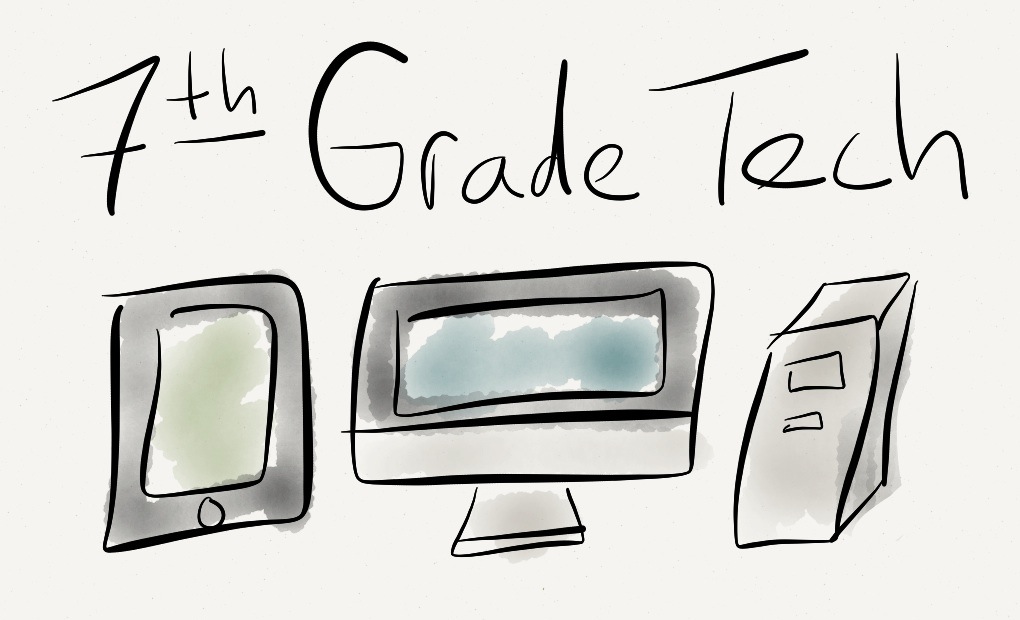 7th Grade Tech